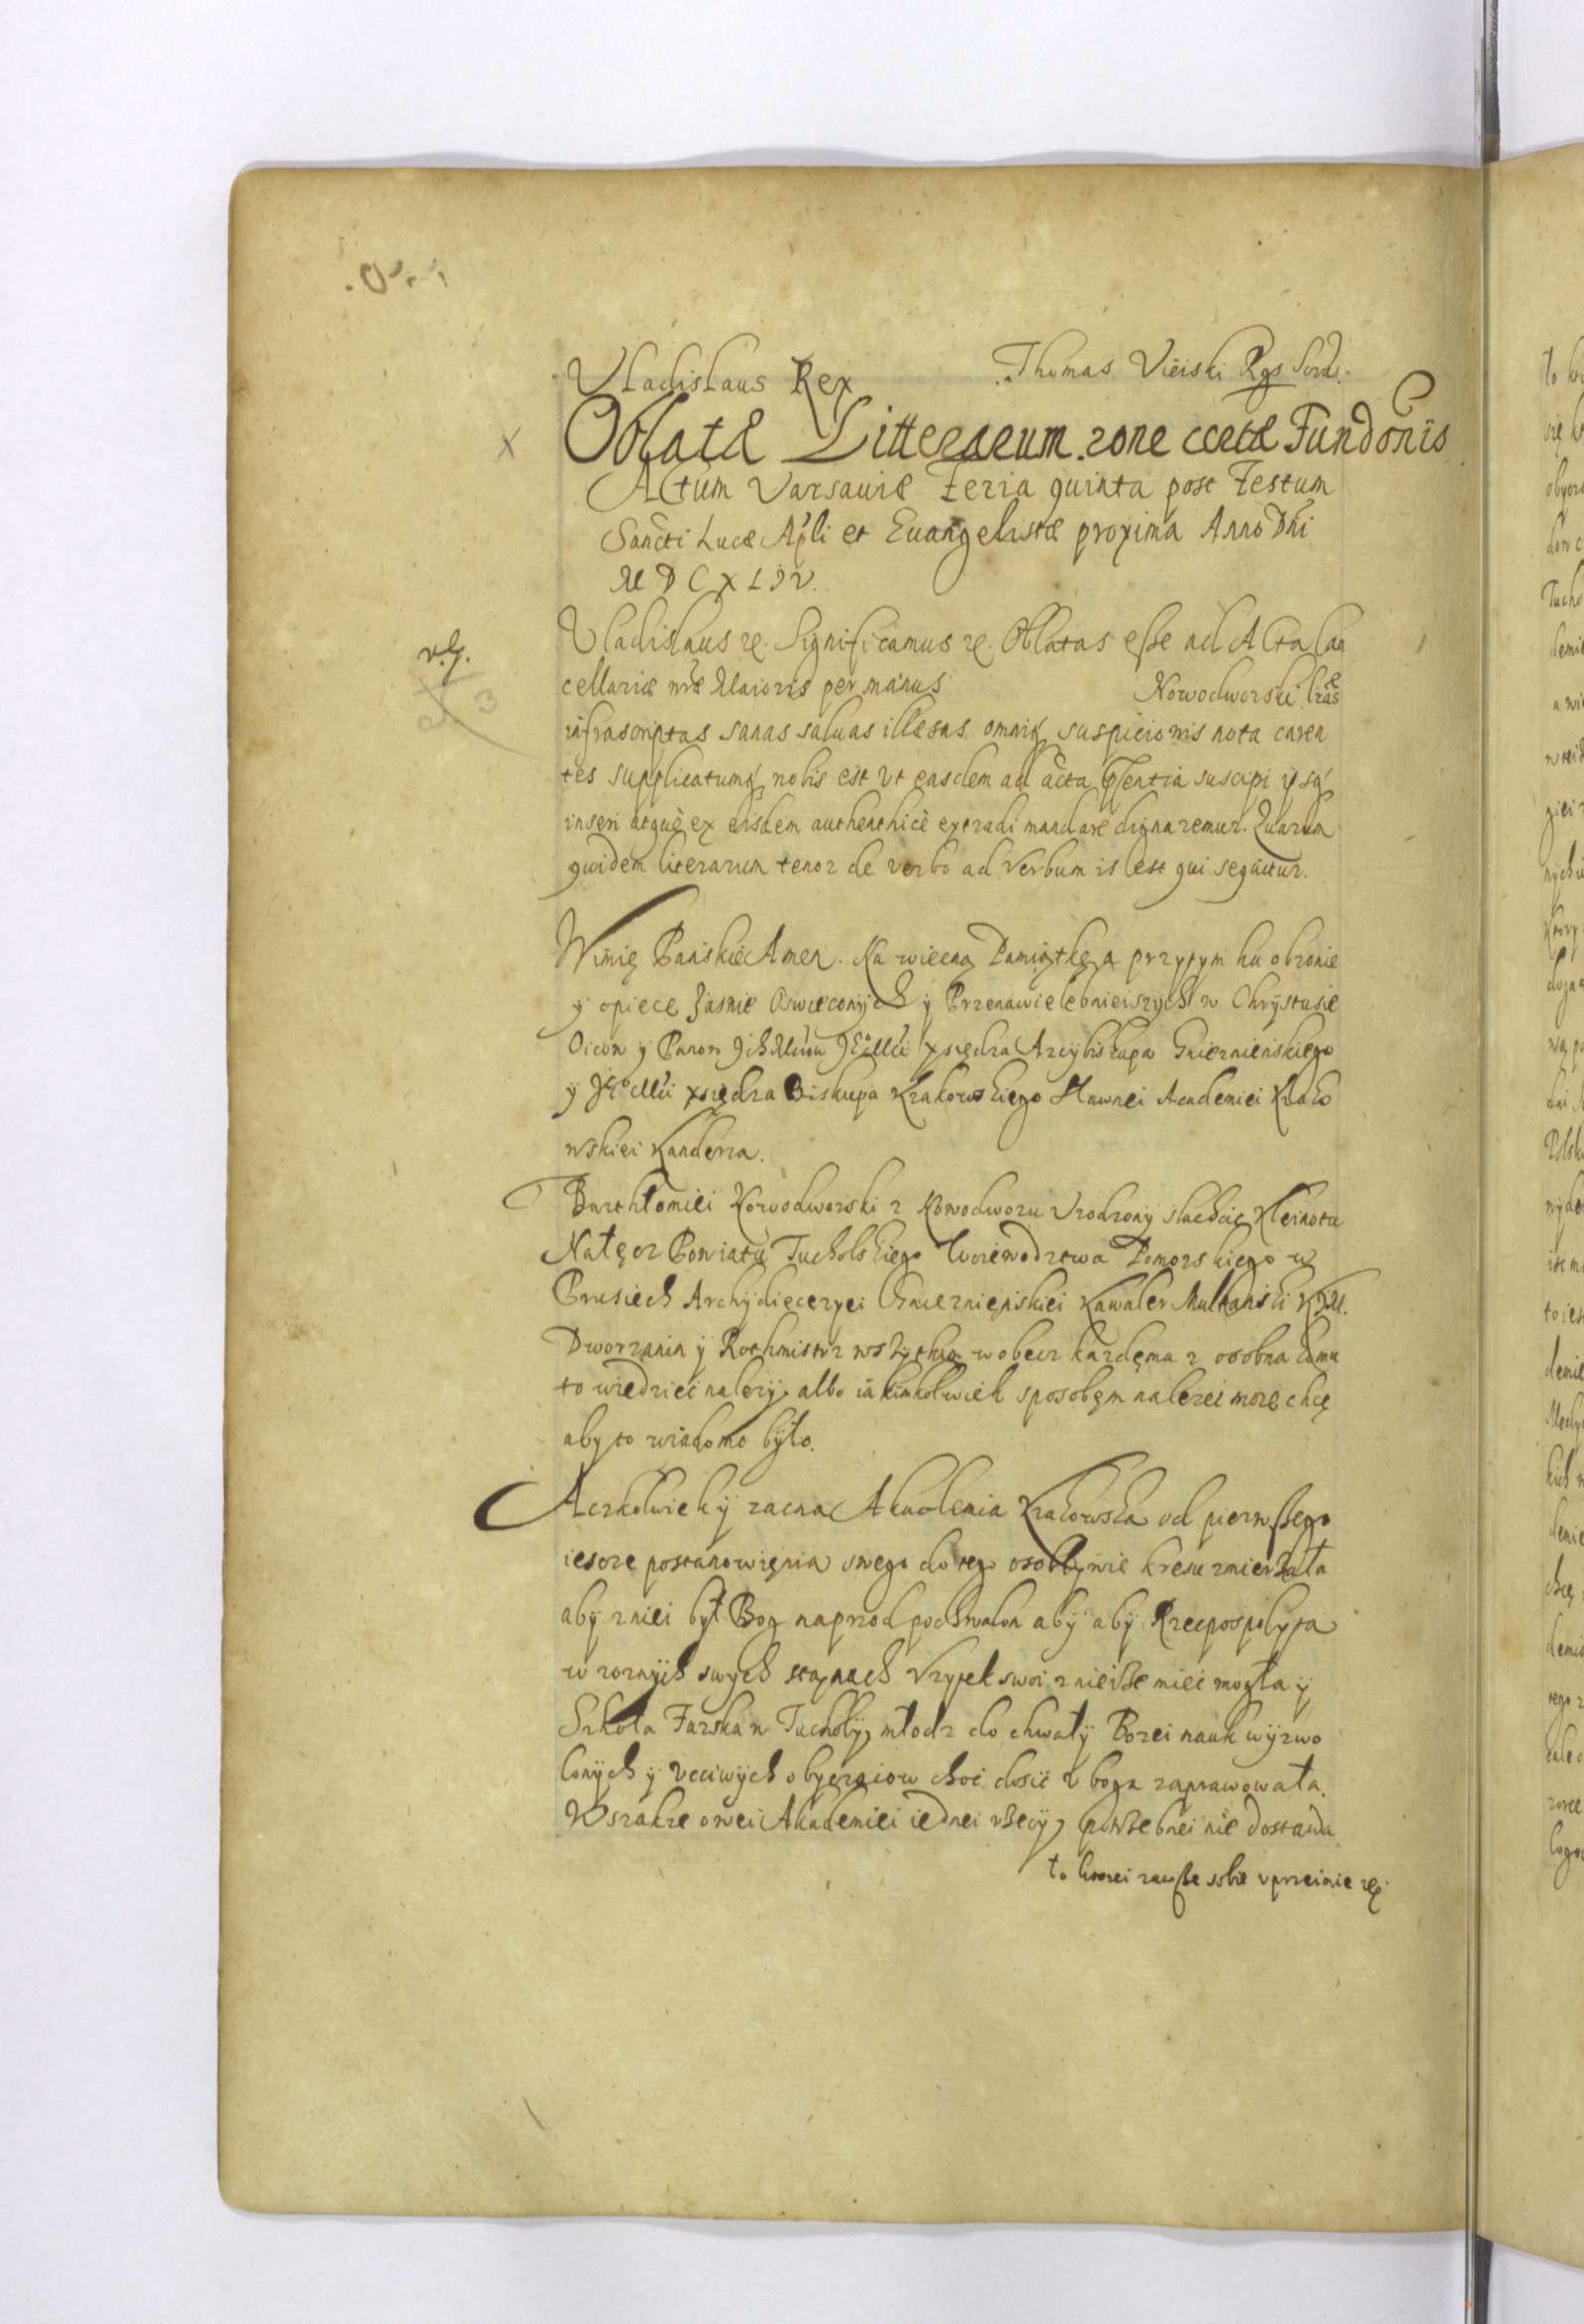 Vladislaus Rex Thomas Vieiski Rgs
Oblatæ Litterarum rone certæ Fundonis
Actum Varsaviæ Feria quinta post Festum
Sancti Lucæ Apli et Euangelistæ proxima Anno Dni
MDCXLIV.
Vladislaus &. Significamus &. Oblatas esse ad Acta Can
v.g.
cellariæ nræ Maioris per manus Nowodworski lras
3
infrascriptas sanas saluas illæsas omniq suspicionis nota caren
tes supplicatumq nobis est vt easdem ad acta pntia suscipi ijsq
inseri atque ex eisdem authenthice extradi mandare dignaremur. Quarum
quidem literarum tenor de verbo ad verbum is est qui sequitur.
W imię Panskie Amen. Na wieczną Pamiątkę a przytym ku obronie
y opiece Jasnie Oswieconych y Przenawielebnieiszych w Chrystusie
Oicow y Panow Ich Mciow JEo Mci xsiędza Arcybiskupa Gnieznienskiego
y JEo Mci xsiędza Biskupa Krakowskiego Sławnei Academiei Krako
wskiei Kanclerza.
Barthłomiei Nowodworski z Nowodworu Vrodzony slachcic Kleinotu
Nałęcz Powiatu Tucholskiego Woiewodztwa Pomorskiego w
Prusiech Archydiecezyei Gnieznienskiei Kawaler Multanski KJM.
Dworzanin y Rothmistrz wszytkim wobecz każdęmu z osobna komu
to wiedzieć nalezy, albo iakimkolwiek sposobęm nalezei moze chcę
aby to wiadomo było.
Aczkolwiek y zacna Akademia Krakowska od pierwszego
ieszcze postanowięnia swego do tego osobliwie kresu zmierzała
aby z niei był Bog naprzod pochwalon aby aby Rzecpospolyta
w roznych swych stanach Vzytek swoi z nieisze mieć mogła y
Szkoła Farska w Tucholy, młodz do chwały Bozei nauk wyzwo
lonych y vcciwych obyczaiow choć dosić z boga zaprawowała.
Wszakze owei Akademiei iednei rzeczy, potrzebnei nie dostawa
to ktorei zawsze sobie vprzeimie &